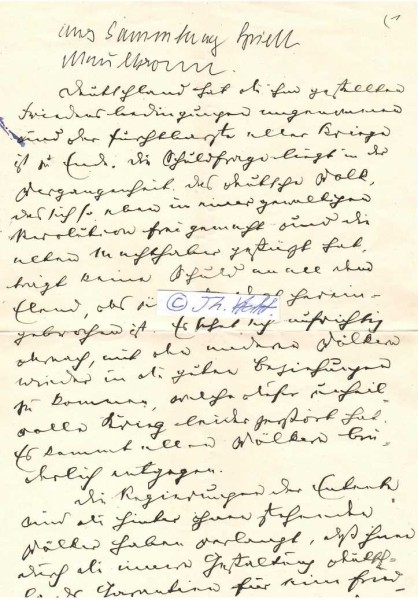 (1
aus Sammlung Brielt
Maulbronn.
Deutschland hat die ihm gestellten
Friedensbedingungen angenommen
und der furchtbarste aller Kriege
ist zu Ende. Die Schuldfrage liegt in der
Vergangenheit. Das deutsche Volk,
das sich so eben in einer gewaltigen
Revolution frei gemacht und die
alten Machthaber gestürzt hat,
trägt keine Schuld an all dem
Elend, das herein-
© J. H. 
gebrochen ist. Es sehnt sich aufrichtig
danach, mit den anderen Völkern
wieder in die guten Beziehungen
zu kommen, welche dieser unheil-
volle Krieg leider zerstört hat.
Es kommt allen Völkern brü-
derlich entgegen.
Die Regierungen der Entente
und die hinter ihnen stehenden
Völker haben verlangt, daß ihnen
durch die innere Gestaltung Deutsch-
lands Garantien für einen